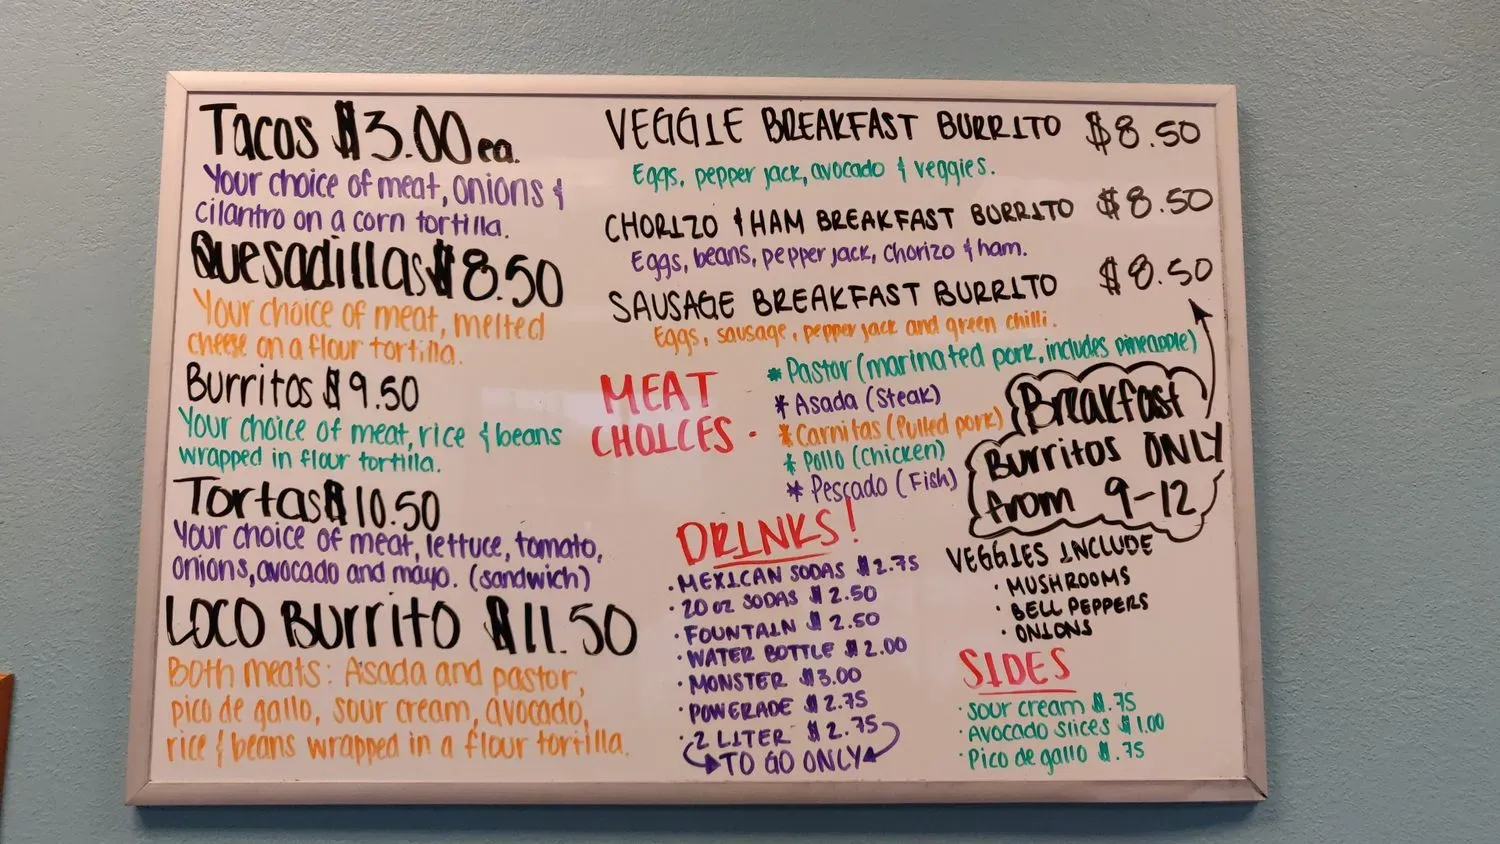 Tacos $3.00 ea.
Your choice of meat, onions &
cilantro on a corn tortilla.
Quesadillas $8.50
Your choice of meat, melted
cheese on a flour tortilla.
Burritos $9.50
Your choice of meat, rice & beans
wrapped in flour tortilla.
Tortas $10.50
Your choice of meat, lettuce, tomato,
onions, avocado and mayo. (sandwich)
LOCO BURRITO $11.50
Both meats: Asada and pastor,
pico de gallo, sour cream, avocado,
rice & beans wrapped in a flour tortilla.
VEGGIE BREAKFAST BURRITO $8.50
Eggs, pepper jack, avocado & veggies.
CHORIZO & HAM BREAKFAST BURRITO $8.50
Eggs, beans, pepper jack, chorizo & ham.
SAUSAGE BREAKFAST BURRITO $8.50
Eggs, sausage, pepper jack and green chilli.
MEAT
CHOICES -
* Pastor (marinated pork, includes pineapple)
* Asada (Steak)
* Carnitas (Pulled pork)
* Pollo (Chicken)
* Pescado (Fish)
Breakfast
Burritos ONLY
from 9-12
DRINKS!
· MEXICAN SODAS $2.75
· 20 OZ SODAS $2.50
· FOUNTAIN $2.50
· WATER BOTTLE $2.00
· MONSTER $3.00
· POWERADE $2.75
· 2 LITER $2.75
TO GO ONLY
VEGGIES INCLUDE
· MUSHROOMS
· BELL PEPPERS
· ONIONS
SIDES
· Sour cream $.75
· Avocado slices $1.00
· Pico de gallo $.75